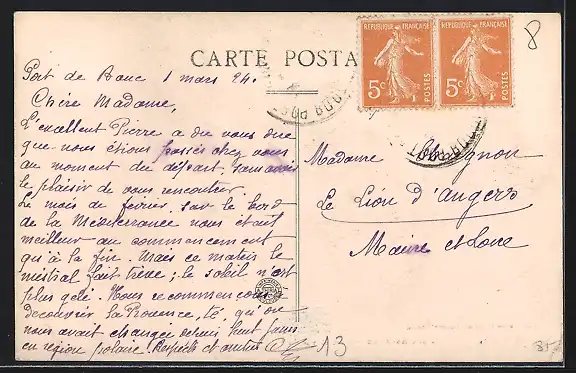 CARTE POSTA
RÉPUBLIQUE FRANÇAISE
5c POSTES
RÉPUBLIQUE FRANÇAISE
5c POSTES
8
Port de Bouc 1 mars 24.
Chère Madame,
L'excellent Pierre a dû vous dire
que nous étions passés chez vous
au moment du départ, sans avoir
le plaisir de vous rencontrer.
Le mois de février sur le bord
de la Méditerranée nous était
meilleur au commencement
qu'à la fin. Mais ce matin le
mistral fait trève ; le soleil n'est
plus gelé. Nous recommençons à
découvrir la Provence, té, qu'on
nous avait changée depuis huit jours
en région polaire. Respects et amitiés
Madame
Le Lion d'Angers
Maine et Loire
A3